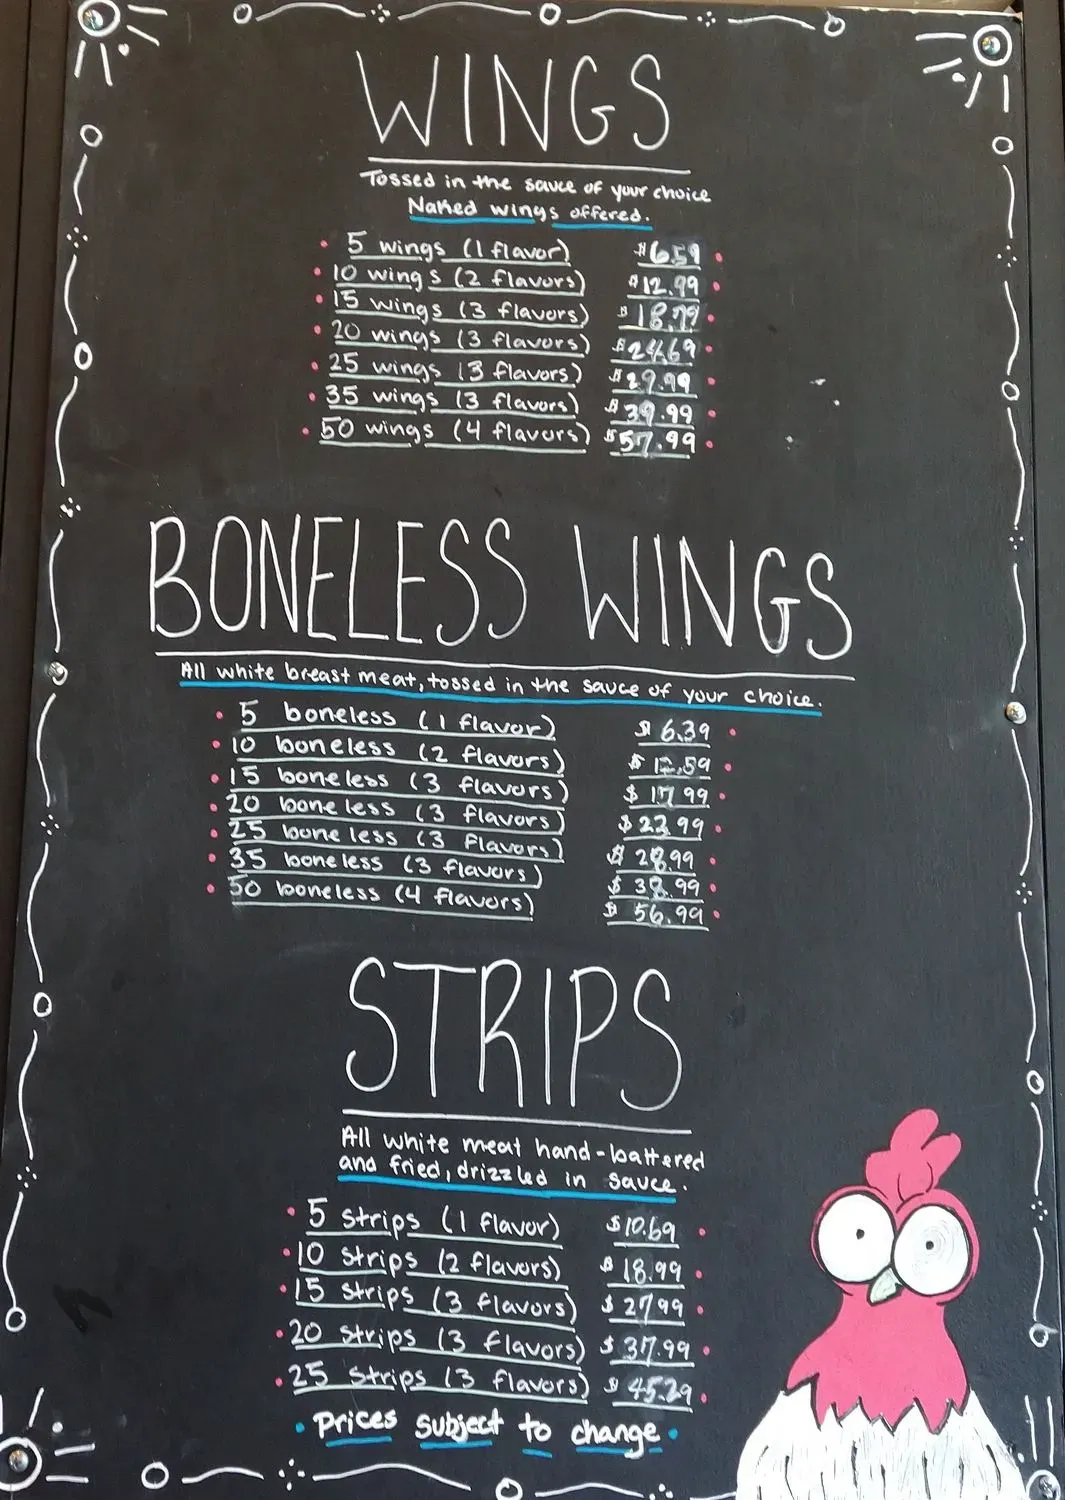 WINGS
Tossed in the sauce of your choice
Naked wings offered.
5 wings (1 flavor) $6.59
10 wings (2 flavors) $12.99
15 wings (3 flavors) $18.79
20 wings (3 flavors) $24.69
25 wings (3 flavors) $29.99
35 wings (3 flavors) $39.99
50 wings (4 flavors) $57.99
BONELESS WINGS
All white breast meat, tossed in the sauce of your choice.
5 boneless (1 flavor) $6.39
10 boneless (2 flavors) $12.59
15 boneless (3 flavors) $17.99
20 boneless (3 flavors) $23.99
25 boneless (3 flavors) $28.99
35 boneless (3 flavors) $38.99
50 boneless (4 flavors) $56.99
STRIPS
All white meat hand-battered
and fried, drizzled in sauce.
5 strips (1 flavor) $10.69
10 strips (2 flavors) $18.99
15 strips (3 flavors) $27.99
20 strips (3 flavors) $37.99
25 strips (3 flavors) $45.29
• Prices subject to change •